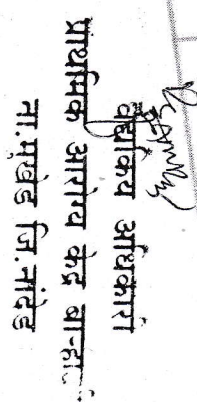 वैद्यकिय अधिकारी
प्राथमिक आरोग्य केंद्र बा-हाळी
ता.मुखेड जि.नांदेड